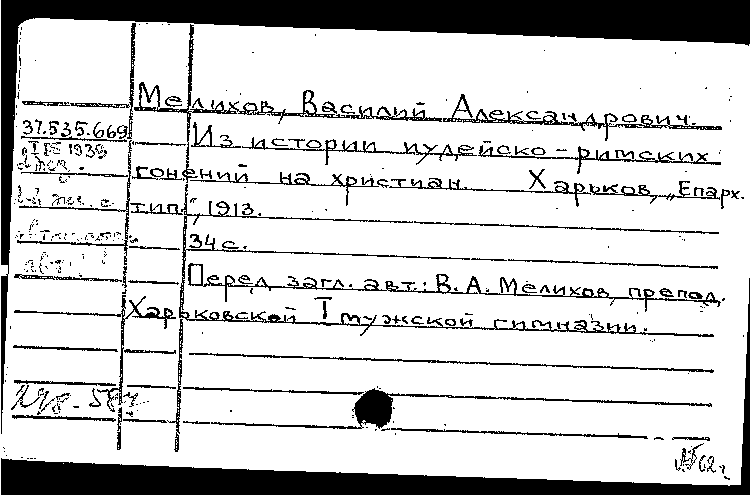 Мелихов, Василий Александрович.
37.535.669 Из истории иудейско-римских
IX 1939
гонений на христиан. Харьков, „Епарх.
тип.", 1913.
34 с.
Перед загл. авт.: В. А. Мелихов, препод.
Харьковской I мужской гимназии.